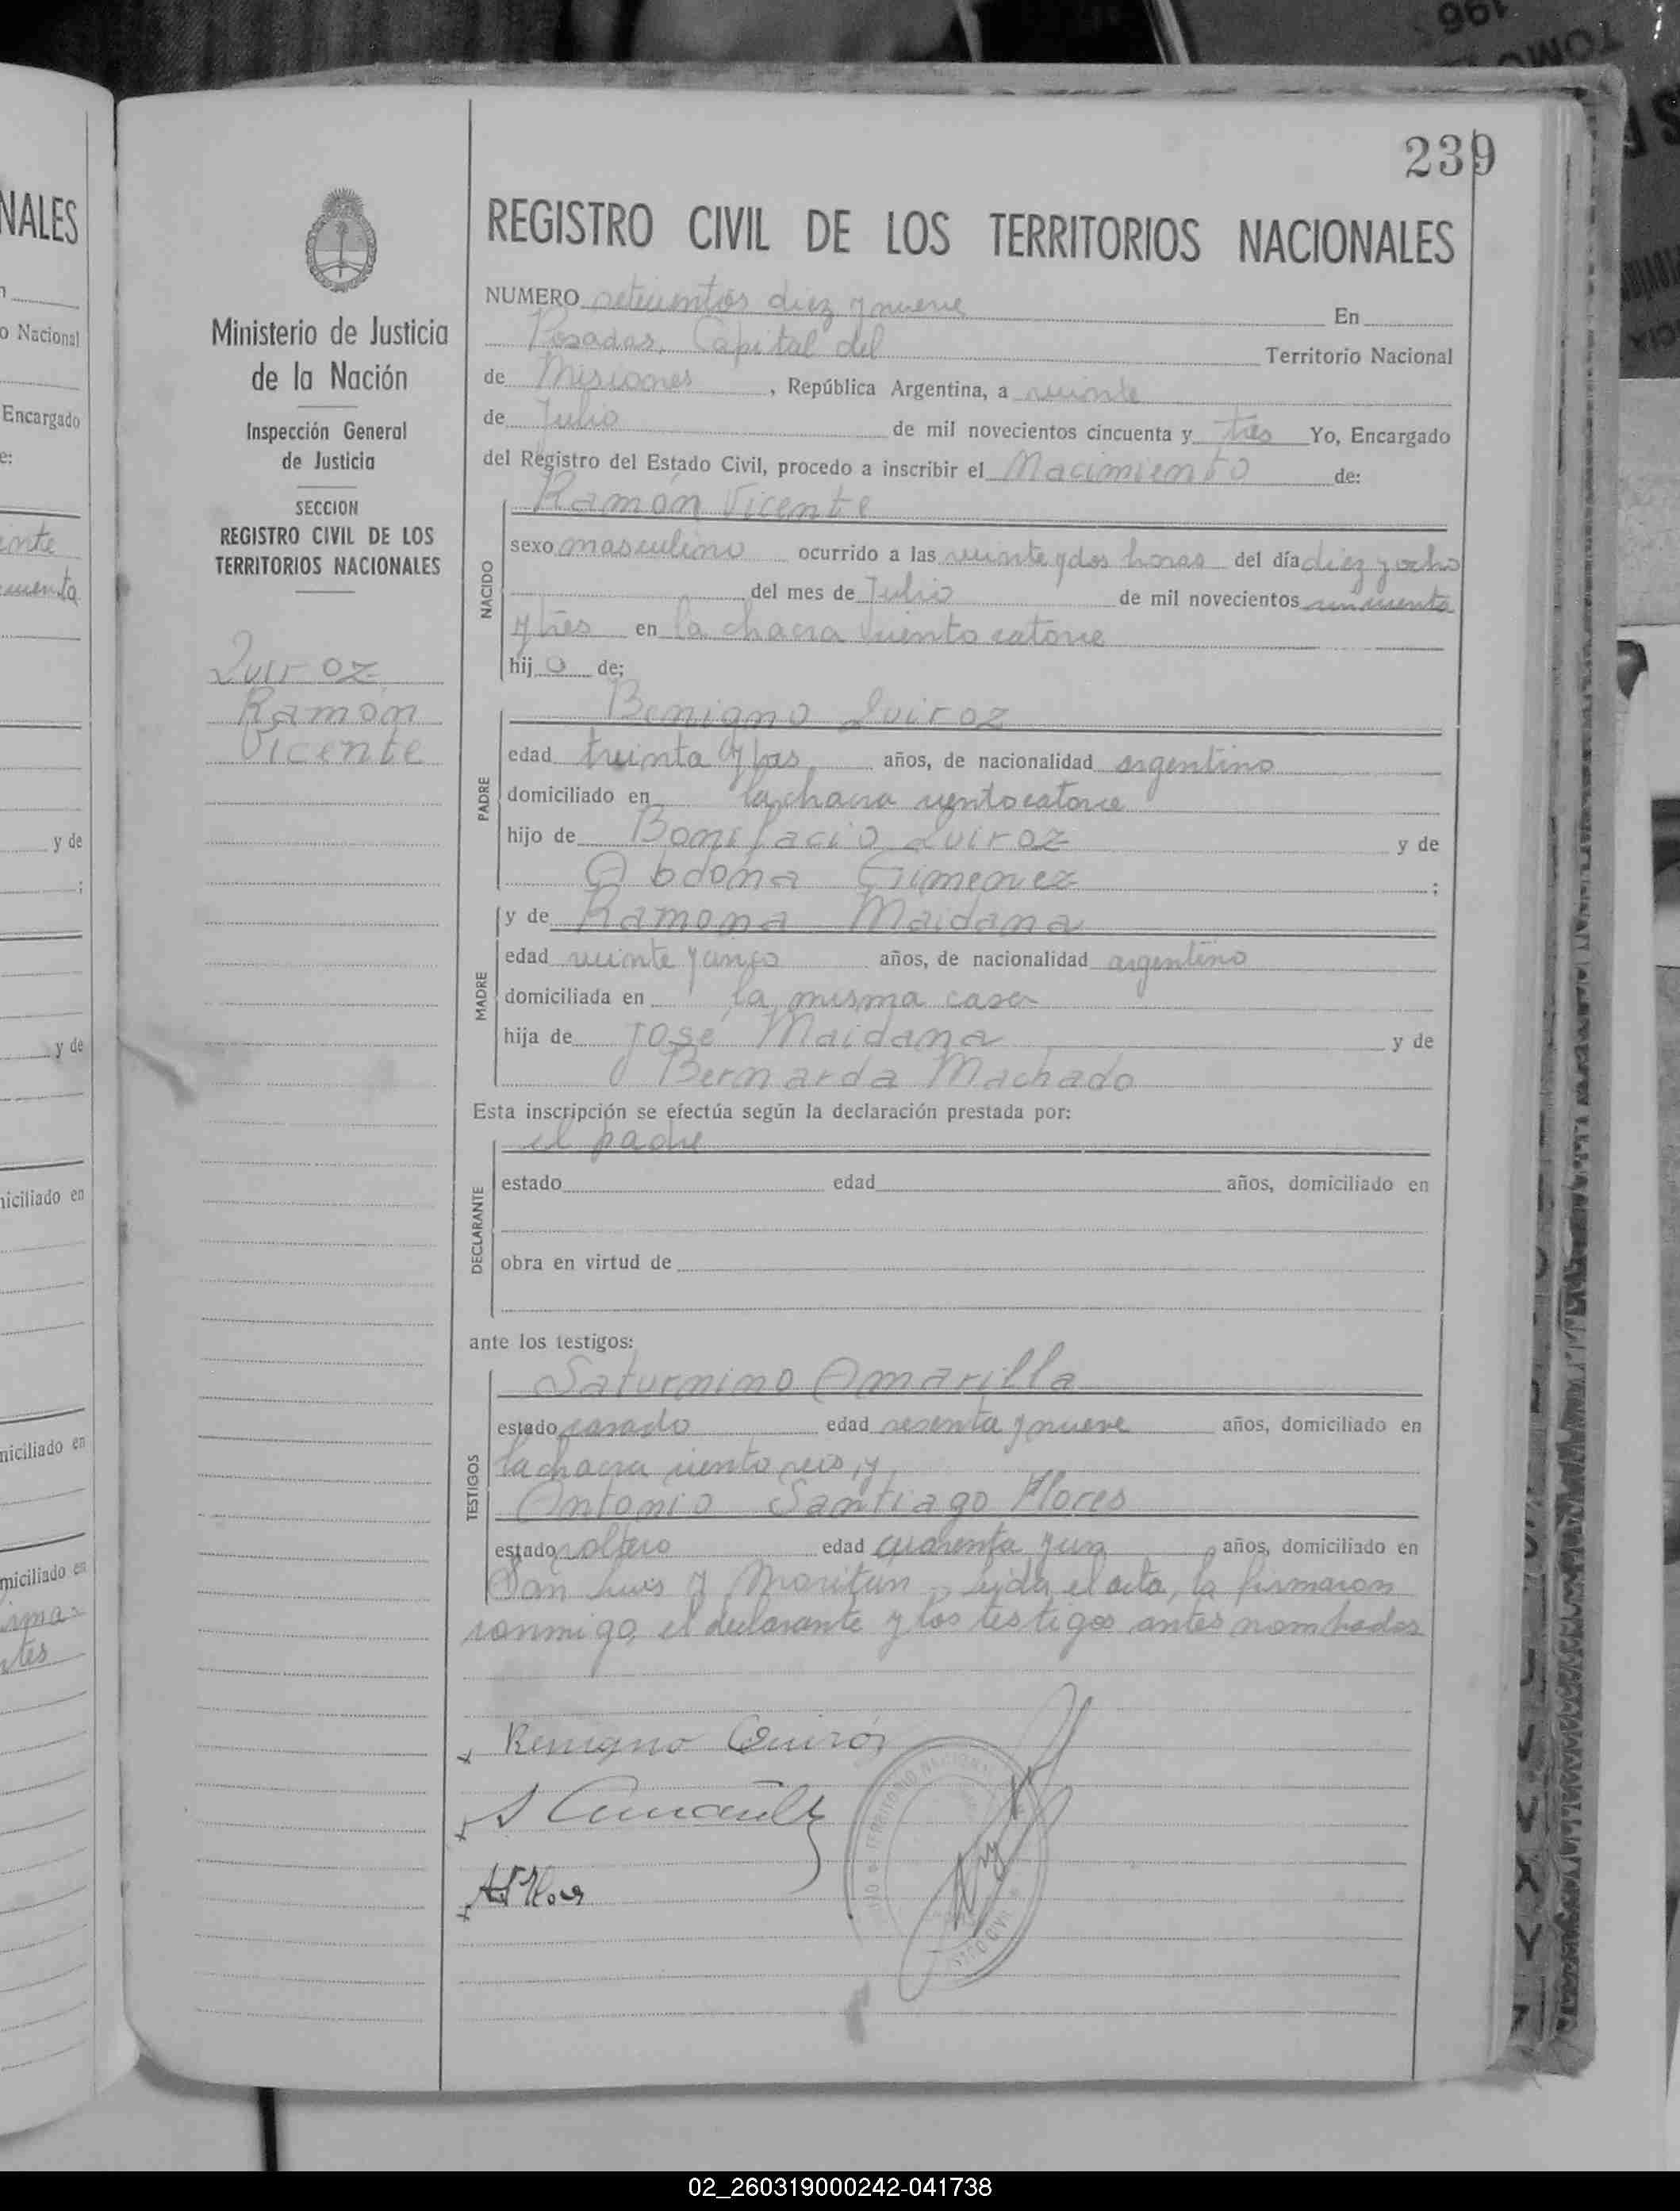 196
TOMO
239
NALES
o Nacional
Encargado
e:
y de
y de
niciliado en
niciliado en
miciliado en
Ministerio de Justicia
de la Nación
Inspección General
de Justicia
SECCION
REGISTRO CIVIL DE LOS
TERRITORIOS NACIONALES
Quiroz
Ramón
Vicente
REGISTRO CIVIL DE LOS TERRITORIOS NACIONALES
NUMERO setecientos diez y nueve En
Posadas, Capital del Territorio Nacional
de Misiones, República Argentina, a veinte
de Julio de mil novecientos cincuenta y tres Yo, Encargado
del Registro del Estado Civil, procedo a inscribir el Nacimiento de:
Ramón Vicente
NACIDO
sexo masculino ocurrido a las veinte y dos horas del día diez y ocho
del mes de Julio de mil novecientos cincuenta
y tres en la chacra ciento catorce
hij o de:
Benigno Quiroz
PADRE
edad treinta y tres años, de nacionalidad argentino
domiciliado en la chacra ciento catorce
hijo de Bonifacio Quiroz y de
Abdona Gimenez ;
y de Ramona Maidana
MADRE
edad veinte y cinco años, de nacionalidad argentino
domiciliada en la misma casa
hija de José Maidana y de
Bernarda Machado
Esta inscripción se efectúa según la declaración prestada por:
el padre
DECLARANTE
estado edad años, domiciliado en
obra en virtud de
ante los testigos:
Saturnino Amarilla
TESTIGOS
estado casado edad sesenta y nueve años, domiciliado en
la chacra ciento seis, y
Antonio Santiago Flores
estado soltero edad cuarenta y un años, domiciliado en
San Luis y Moritan, leida el acta, la firmaron
conmigo, el declarante y los testigos antes nombrados
Benigno Quiróz
A S Flores
02_260319000242-041738